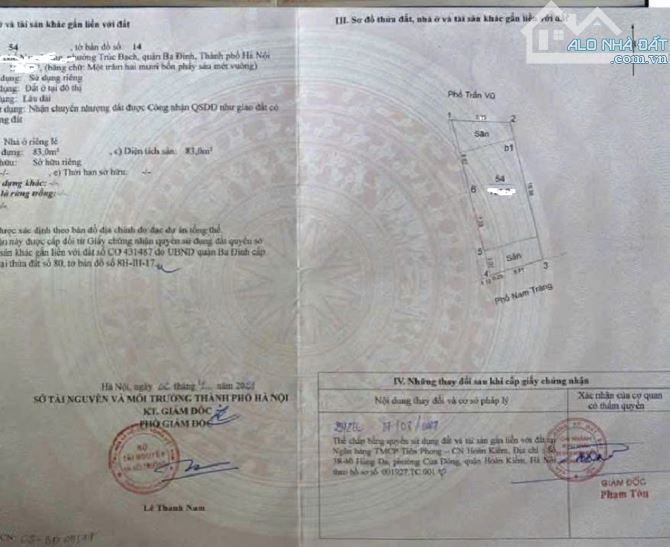 ở và tài sản khác gắn liền với đất
54, tờ bản đồ số: 14
phường Trúc Bạch, quận Ba Đình, Thành phố Hà Nội
(bằng chữ: Một trăm hai mươi bốn phẩy sáu mét vuông)
dụng: Sử dụng riêng
dụng: Đất ở tại đô thị
dụng: Lâu dài
dụng: Nhận chuyển nhượng đất được Công nhận QSDĐ như giao đất có
ng đất
Nhà ở riêng lẻ
dựng: 83,0m², c) Diện tích sàn: 83,0m²
hữu: Sở hữu riêng
-/-, e) Thời hạn sở hữu: -/-
dựng khác: -/-
là rừng trồng: -/-
-/-
được xác định theo bản đồ địa chính đo đạc dự án tổng thể.
ận này được cấp đổi từ Giấy chứng nhận quyền sử dụng đất quyền sở
sản khác gắn liền với đất số CO 431467 do UBND quận Ba Đình cấp
tại thửa đất số 80, tờ bản đồ số 8H-III-17
Hà Nội, ngày tháng năm
SỞ TÀI NGUYÊN VÀ MÔI TRƯỜNG THÀNH PHỐ HÀ NỘI
KT. GIÁM ĐỐC
PHÓ GIÁM ĐỐC
SỞ
TÀI NGUYÊN
VÀ MÔI TRƯỜNG
Lê Thanh Nam
CN:
III. Sơ đồ thửa đất, nhà ở và tài sản khác gắn liền với đất
ALO NHÀ ĐẤT
Phố Trấn Vũ
1
2
Sân
b1
54
6
5
Sân
4
3
Phố Nam Tràng
IV. Những thay đổi sau khi cấp giấy chứng nhận
Nội dung thay đổi và cơ sở pháp lý
Xác nhận của cơ quan
có thẩm quyền
Thế chấp bằng quyền sử dụng đất và tài sản gắn liền với đất tại
Ngân hàng TMCP Tiên Phong – CN Hoàn Kiếm, Địa chỉ: Số
38-40 Hàng Da, phường Cửa Đông, quận Hoàn Kiếm, Hà Nội
theo hồ sơ số 001927.TC.001
GIÁM ĐỐC
Phạm Tôn